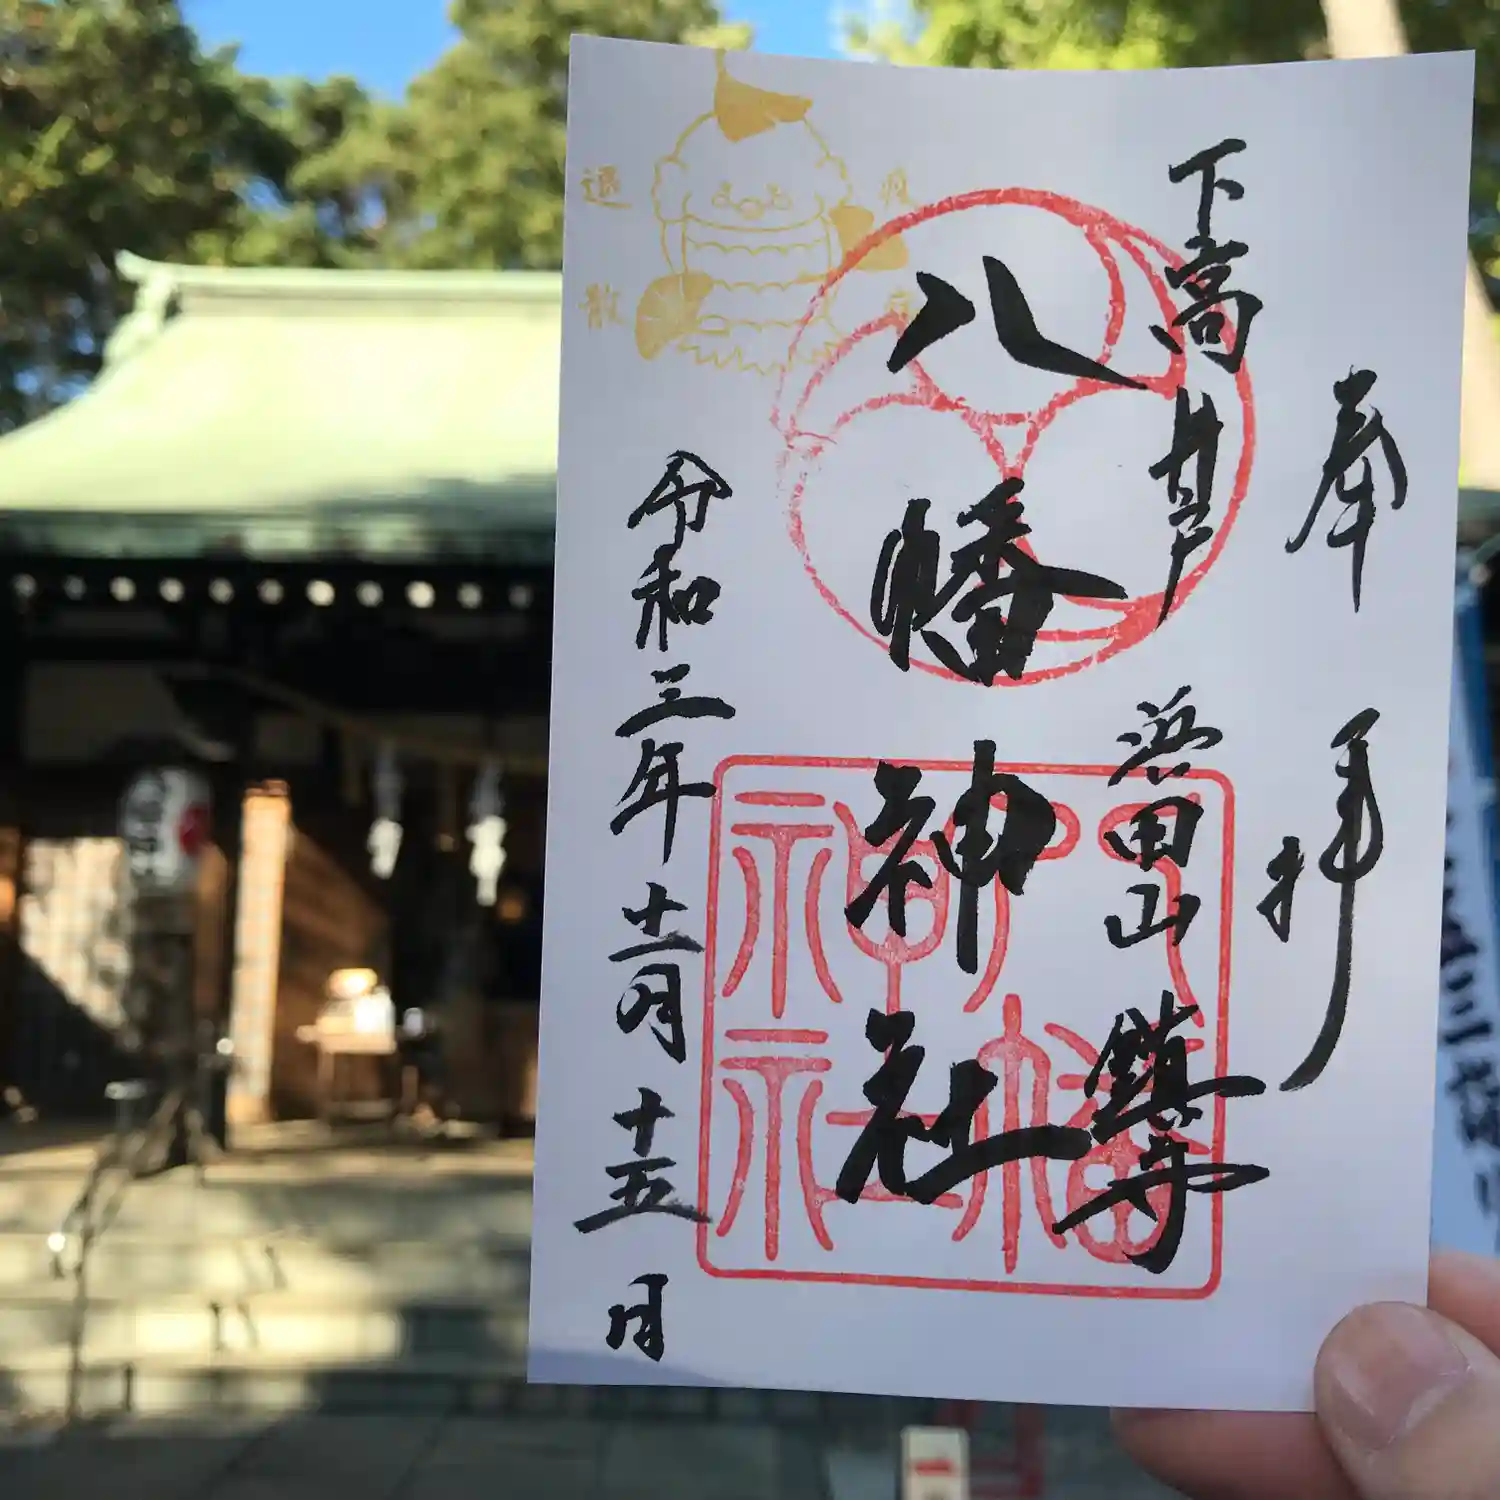 奉拝
下高井戸
浜田山鎮守
八幡神社
令和三年十一月十五日
疫病
退散
八幡神社